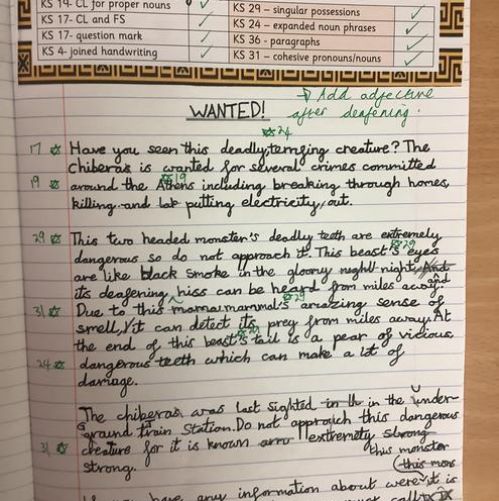 KS 19- CL for proper nouns ✓
KS 17- CL and FS ✓
KS 17- question mark ✓
KS 4- joined handwriting ✓
KS 29 – singular possessions ✓
KS 24 – expanded noun phrases ✓
KS 36 - paragraphs ✓
KS 31 – cohesive pronouns/nouns ✓
→ Add adjective
after deafening.
WANTED!
24
17 Have you seen this deadly, terrifying creature? The
chiberas is wanted for several crimes committed
19
19 around the Athens including breaking through homes,
killing and putting electricity out.
29 This two headed monster's deadly teeth are extremely
29
dangerous so do not approach it. This beast's eyes
are like black smoke in the gloomy night night. And
its deafening hiss can be heard from miles away.
29
31 Due to this mammal's amazing sense of
smell, it can detect its prey from miles away. At
29
the end of this beast's tail is a pear of vicious,
24 dangerous teeth which can make a lot of
damage.
The chiberas was last sighted in the in the under-
ground train Station. Do not approach this dangerous
31 creature for it is known extremely strong
this monster
strong.
have any information about were it is